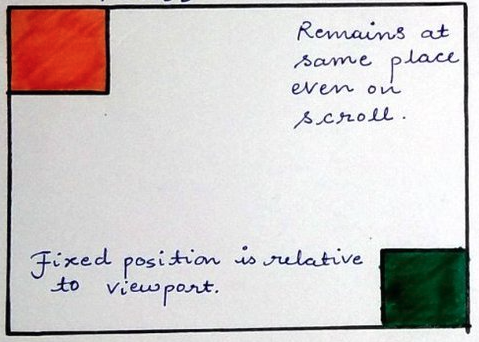 Remains at
same place
even on
scroll.
Fixed position is relative
to viewport.